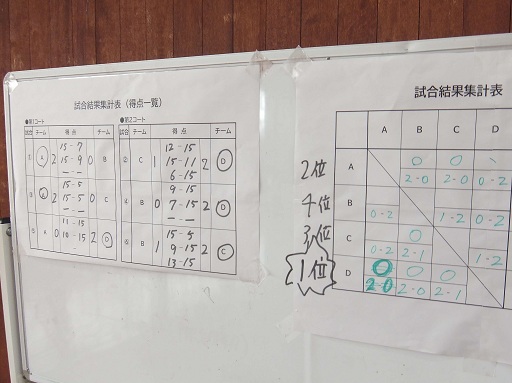 試合結果集計表（得点一覧）
●第1コート
試合 チーム 得点 チーム
① A 2 15-7 15-9 -- 0 B
③ A 2 15-5 15-5 -- 0 C
⑤ A 0 11-15 10-15 2 D
●第2コート
試合 チーム 得点 チーム
② C 1 12-15 15-11 6-15 2 D
④ B 0 9-15 7-15 -- 2 D
⑥ B 1 15-5 9-15 13-15 2 C
試合結果集計表
A B C D
2位 A 0 2-0 0 2-0 0-2
4位 B 0-2 1-2 0-2
3位 C 0-2 0 2-1 1-2
1位 D 0 2-0 0 2-0 0 2-1